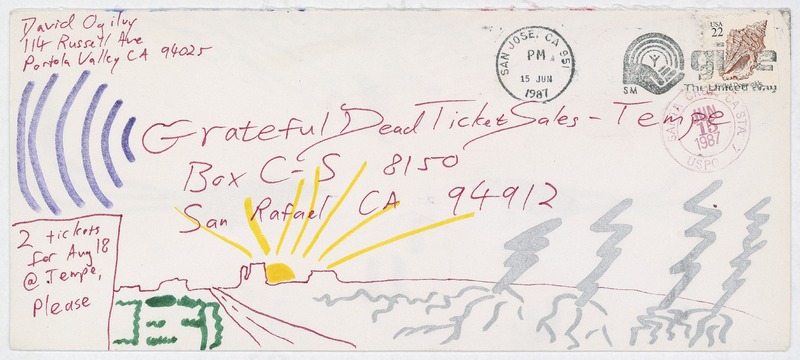 David Ogilvy
114 Russell Ave
Portola Valley CA 94025
SAN JOSE, CA 951
PM
15 JUN
1987
SM
give
The United Way
USA
22
JUN
15
1987
USPO
Grateful Dead Ticket Sales - Tempe
Box C-S 8150
San Rafael CA 94912
2 tickets
for Aug 18
@ Tempe,
Please